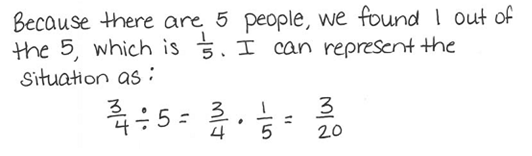 Because there are 5 people, we found 1 out of
the 5, which is 1/5. I can represent the
situation as:
3/4 ÷ 5 = 3/4 · 1/5 = 3/20